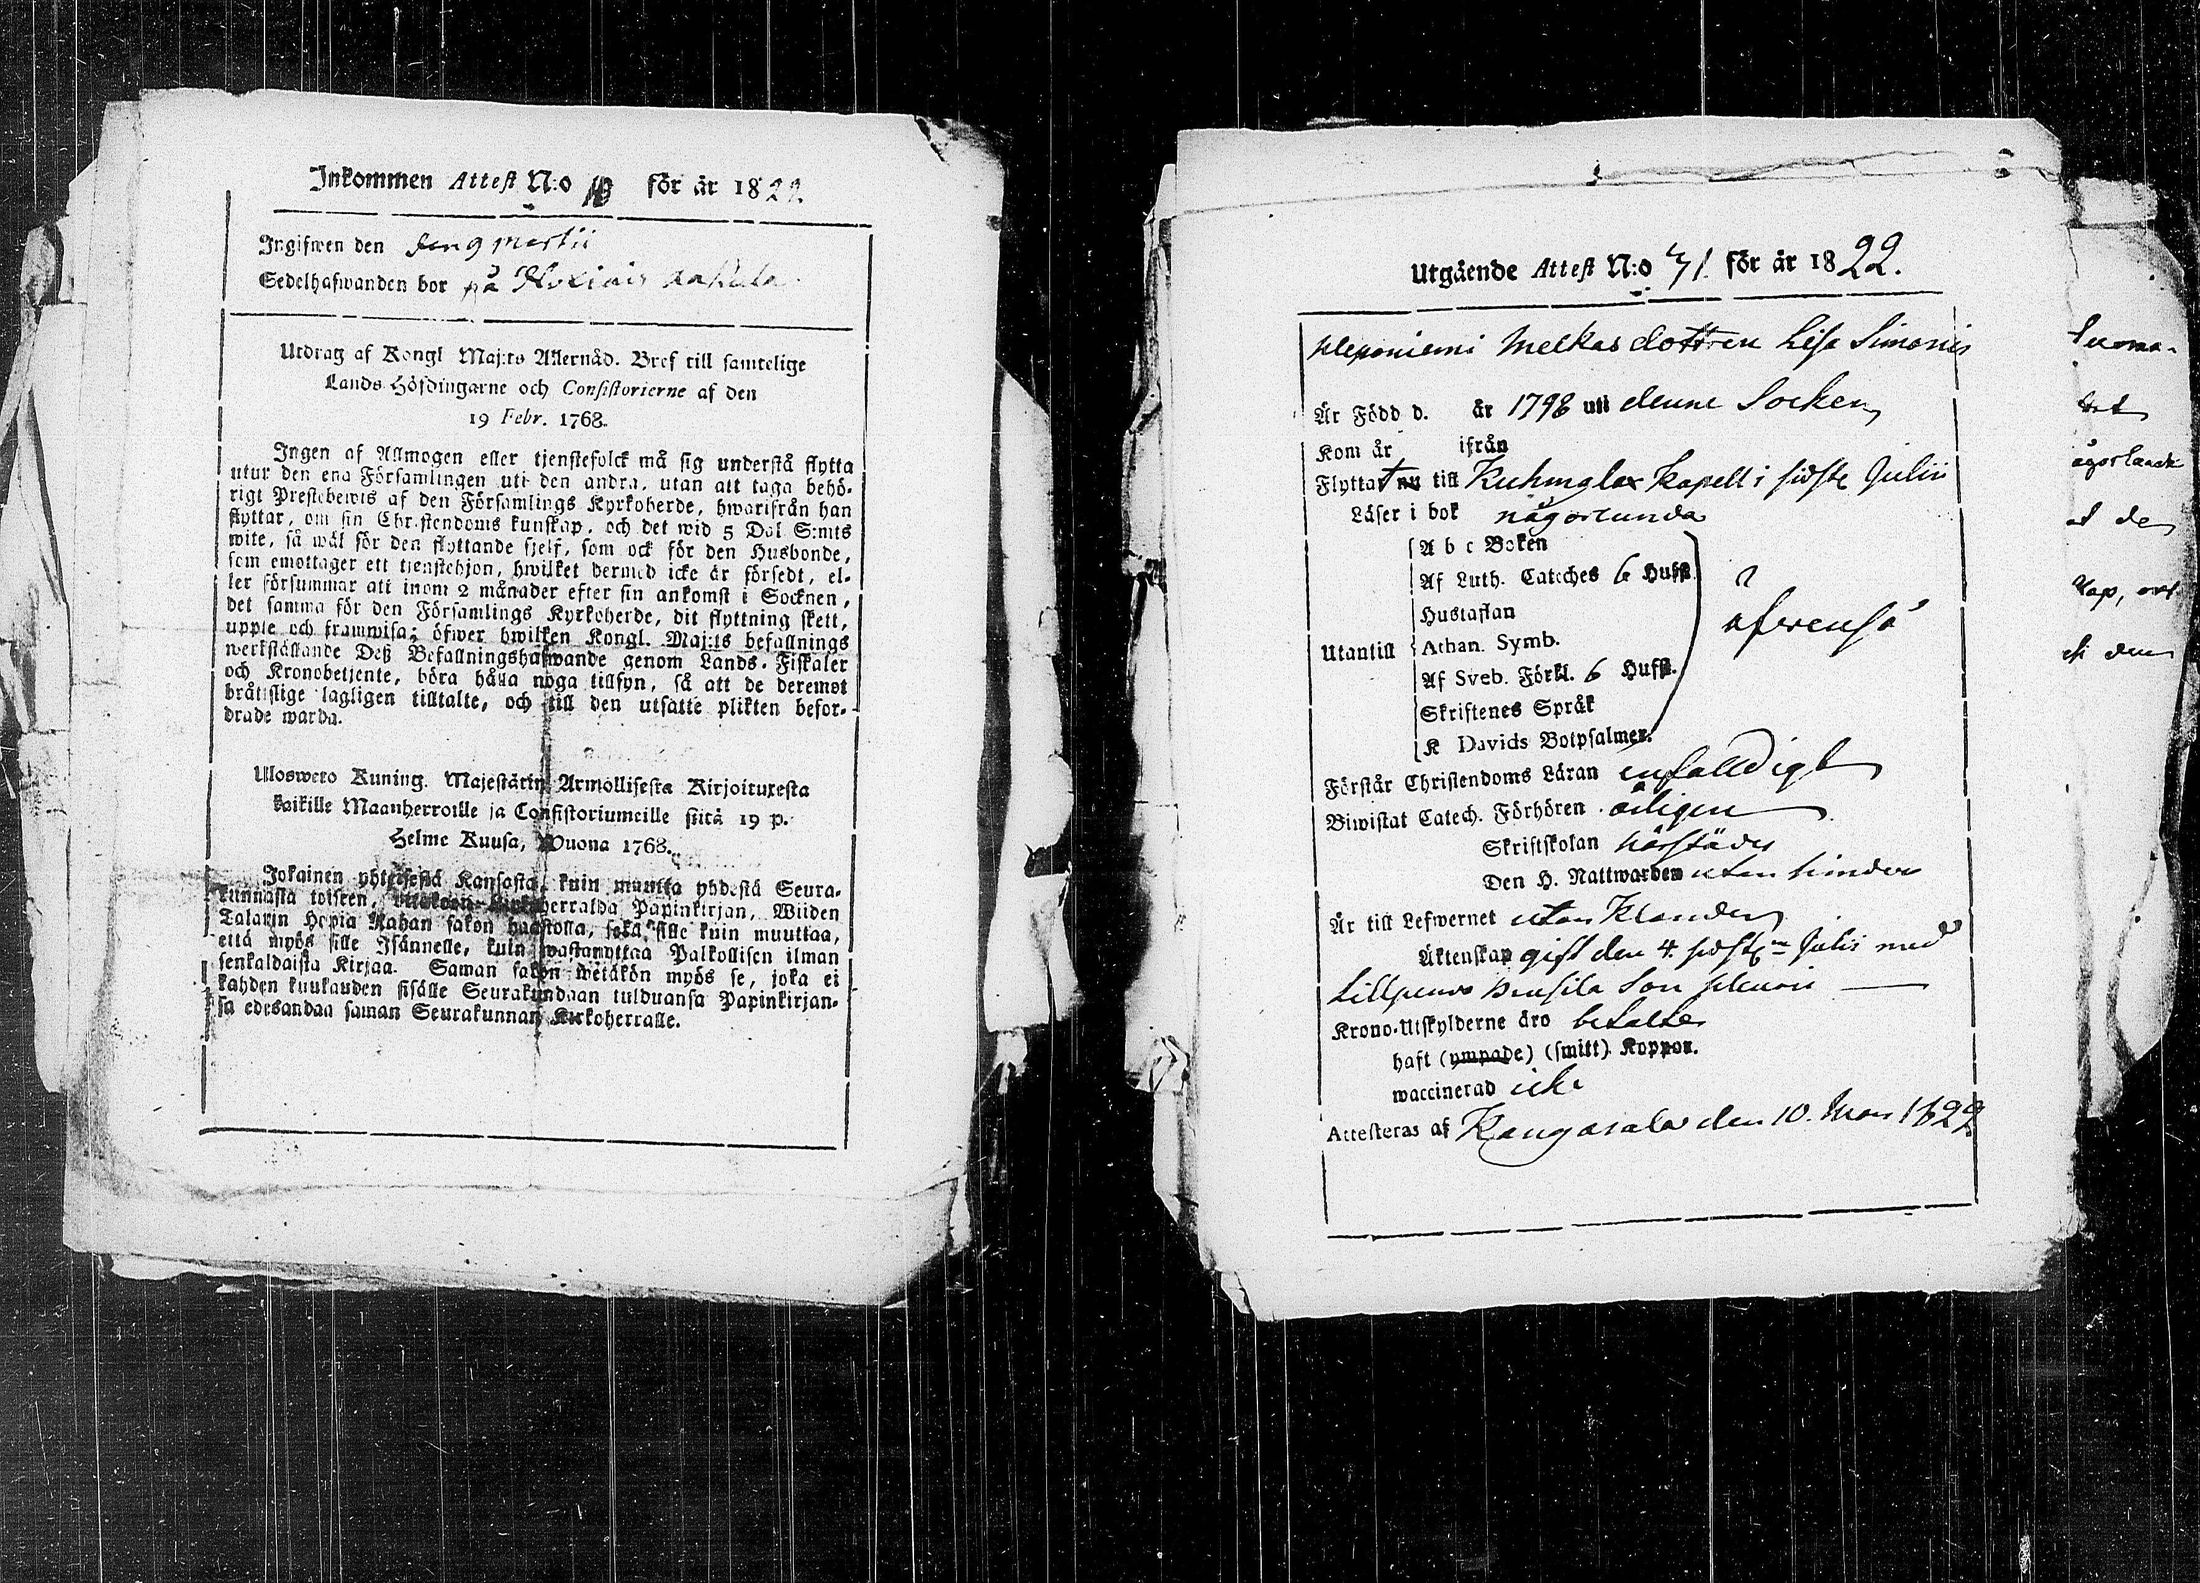 Inkommen Attest N:o för år 1822.
Ingifwen den den 9 Martii
Sedelhafwanden bor på
Utdrag af Kongl Maj:ts Allernåd. Bref till samtelige
Lands Höfdingarne och Consistorierne af den
19 Febr. 1768.
Ingen af Allmogen eller tjenstefolck må sig understå flytta
utur den ena Församlingen uti den andra, utan att taga behö-
rigt Prestebewis af den Församlings Kyrkoherde, hwarifrån han
flyttar, om sin Christendoms kunskap, och det wid 5 Dal S:mts
wite, så wäl för den flyttande sjelf, som ock för den Husbonde,
som emottager ett tjenstehjon, hwilket dermed icke är försedt, el-
ler försummar att inom 2 månader efter sin ankomst i Socknen,
det samma för den Församlings Kyrkoherde, dit flyttning skett,
uppte och framwisa; öfwer hwilken Kongl. Maj:ts befallnings
werkställande Deß Befallningshafwande genom Lands-Fiskaler
och Kronobetjente, böra hålla noga tillsyn, så att de deremot
bråttslige lagligen tilltalte, och till den utsatte plikten befor-
drade warda.
Ulosweto Kuning. Majestätin Armollisesta Kirjoituxesta
kaikille Maanherroille ja Consistoriumeille siitä 19 p.
Helme Kuusa, Wuona 1768.
Jokainen yhteisestä Kansasta, kuin muutta yhdestä Seura-
kunnasta toiseen, herralda Papinkirjan, Wiiden
Talarin Hopia Rahan sakon haastolla, sekä sille kuin muuttaa,
että myös sille Isännelle, kuin wastanottaa Palkollisen ilman
senkaldaista Kirjaa. Saman sakon wetäkön myös se, joka ei
kahden kuukauden sisälle Seurakundaan tulduansa Papinkirjan-
sa edesandaa saman Seurakunnan Kirkoherralle.
Utgående Attest N:o 71. för år 1822.
Meponiemi Melkas dottren Lisa Simonis
Är Född d. år 1798 uti denne Socken
Kom år ifrån
Flyttat nu till Kuhmalax Kapell i sidste Julii
Läser i bok någorlunda
Utantill
A b c Boken
Af Luth. Cateches 6 Hufst.
Hustaflan
Athan. Symb.
Af Sveb. Förkl. 6 Hufst.
Skriftenes Språk
K Davids Botpsalmer.
äfvenså
Förstår Christendoms Läran enfalldigt
Biwistat Catech. Förhören årligen
Skriftskolan härstädes
Den H. Nattwarden utan hinder
Är till Lefwernet utan klander
Äktenskap gift den 4. sidste Julii med
Son
Krono-Utskylderne äro betalte
haft (ympade) (smitt) Koppor.
waccinerad icke
Attesteras af Kangasala den 10. Mars 1822
Suoma-
ågorlunda
at de
kap, ort